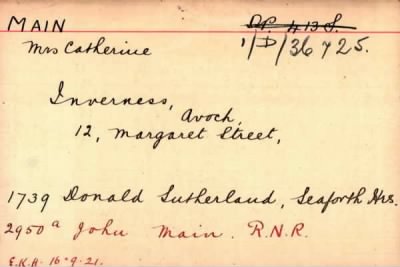 MAIN
Mrs Catherine
D.P. 413 S.
1/D/36725.
Inverness,
Avoch,
12, Margaret Street,
1739 Donald Sutherland, Seaforth Hrs.
2950ᵃ John Main. R.N.R.
E.K.A. 16·9·21.